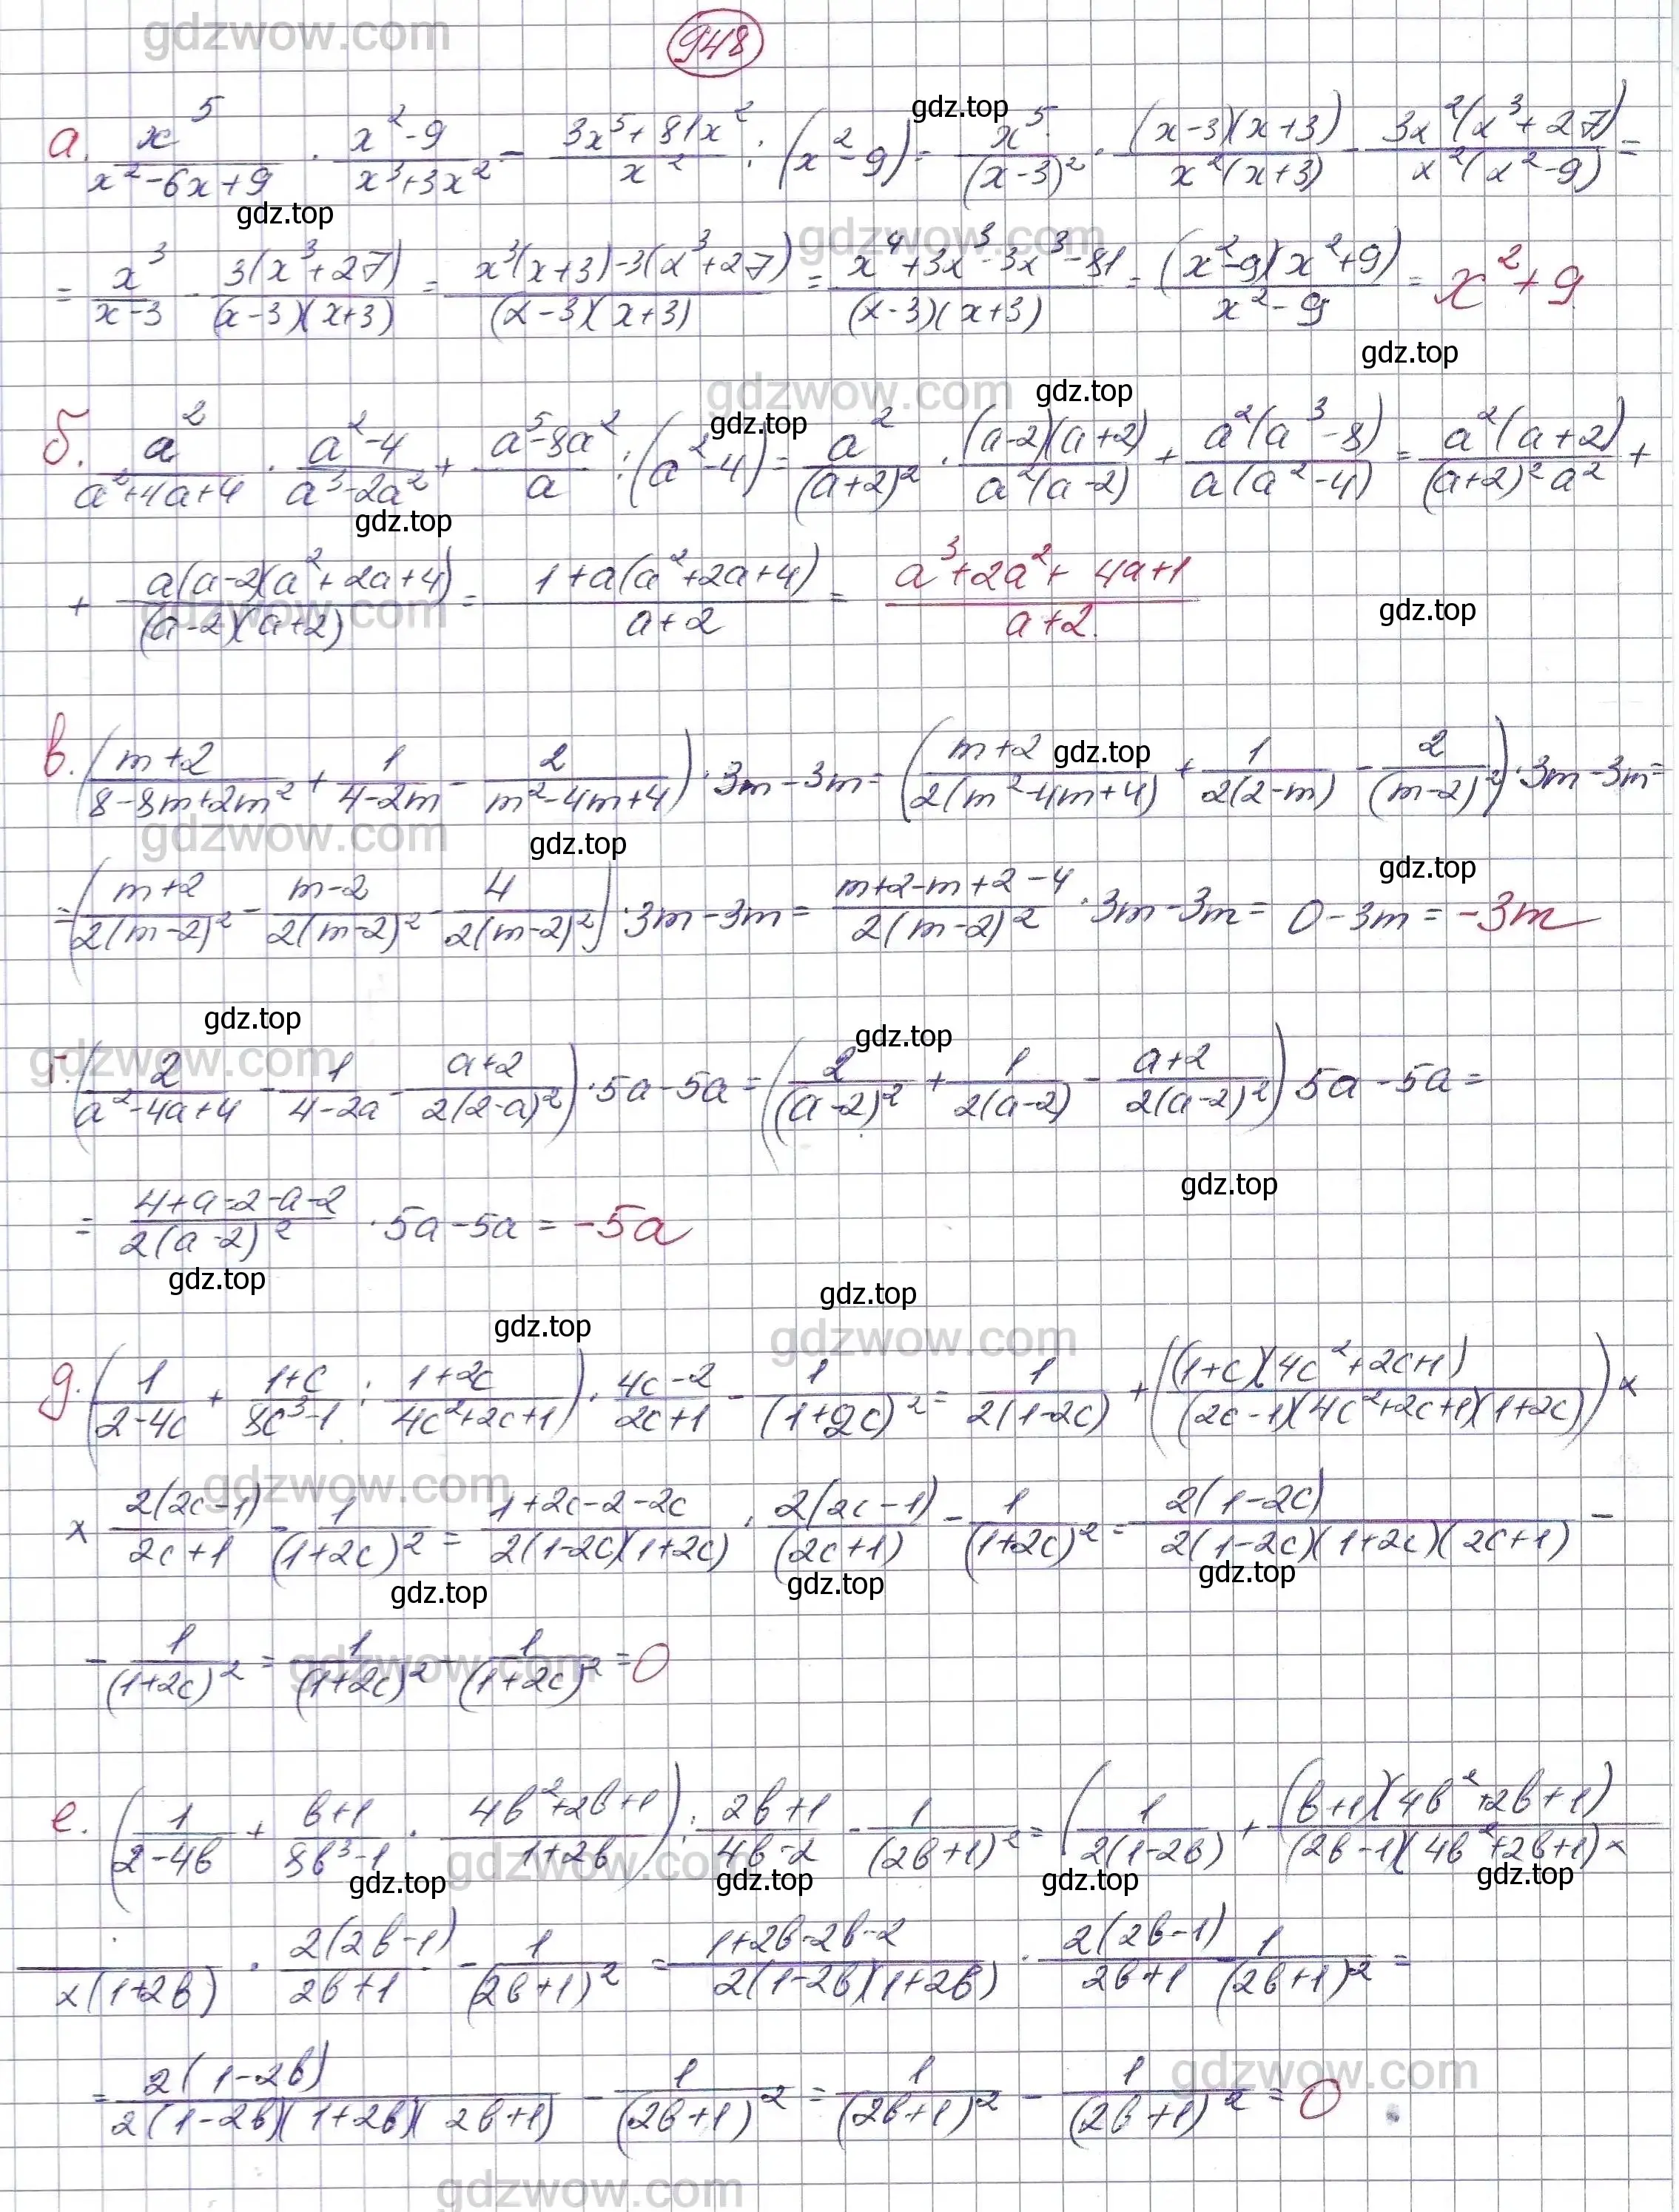 948
а. x^5/(x^2-6x+9) · (x^2-9)/(x^3+3x^2) - (3x^5+81x^2)/x^2 : (x^2-9) = x^5/(x-3)^2 · (x-3)(x+3)/(x^2(x+3)) - 3x^2(x^3+27)/(x^2(x^2-9)) =
= x^3/(x-3) - 3(x^3+27)/((x-3)(x+3)) = (x^3(x+3)-3(x^3+27))/((x-3)(x+3)) = (x^4+3x^3-3x^3-81)/((x-3)(x+3)) = (x^2-9)(x^2+9)/(x^2-9) = x^2+9
б. a^2/(a^2+4a+4) · (a^2-4)/(a^3-2a^2) + (a^5-8a^2)/a : (a^2-4) = a^2/(a+2)^2 · (a-2)(a+2)/(a^2(a-2)) + a^2(a^3-8)/(a(a^2-4)) = a^2(a+2)/((a+2)^2 a^2) +
+ a(a-2)(a^2+2a+4)/((a-2)(a+2)) = (1+a(a^2+2a+4))/(a+2) = (a^3+2a^2+4a+1)/(a+2).
в. ((m+2)/(8-8m+2m^2) + 1/(4-2m) - 2/(m^2-4m+4)) · 3m-3m = ((m+2)/(2(m^2-4m+4)) + 1/(2(2-m)) - 2/(m-2)^2) · 3m-3m =
= ((m+2)/(2(m-2)^2) - (m-2)/(2(m-2)^2) - 4/(2(m-2)^2)) · 3m-3m = (m+2-m+2-4)/(2(m-2)^2) · 3m-3m = 0-3m = -3m
г. (2/(a^2-4a+4) - 1/(4-2a) - (a+2)/(2(2-a)^2)) · 5a-5a = (2/(a-2)^2 + 1/(2(a-2)) - (a+2)/(2(a-2)^2)) 5a-5a =
= (4+a-2-a-2)/(2(a-2)^2) · 5a-5a = -5a
д. (1/(2-4c) + (1+c)/(8c^3-1) : (1+2c)/(4c^2+2c+1)) · (4c-2)/(2c+1) - 1/(1+2c)^2 = 1/(2(1-2c)) + ((1+c)(4c^2+2c+1)/((2c-1)(4c^2+2c+1)(1+2c))) ×
× 2(2c-1)/(2c+1) - 1/(1+2c)^2 = (1+2c-2-2c)/(2(1-2c)(1+2c)) · 2(2c-1)/(2c+1) - 1/(1+2c)^2 = 2(1-2c)/(2(1-2c)(1+2c)(2c+1)) -
- 1/(1+2c)^2 = 1/(1+2c)^2 - 1/(1+2c)^2 = 0
е. (1/(2-4b) + (b+1)/(8b^3-1) · (4b^2+2b+1)/(1+2b)) : (2b+1)/(4b-2) - 1/(2b+1)^2 = (1/(2(1-2b)) + (b+1)(4b^2+2b+1)/((2b-1)(4b^2+2b+1)×
×(1+2b)) · 2(2b-1)/(2b+1) - 1/(2b+1)^2 = (1+2b-2b-2)/(2(1-2b)(1+2b)) · 2(2b-1)/(2b+1) - 1/(2b+1)^2 =
= 2(1-2b)/(2(1-2b)(1+2b)(2b+1)) - 1/(2b+1)^2 = 1/(2b+1)^2 - 1/(2b+1)^2 = 0